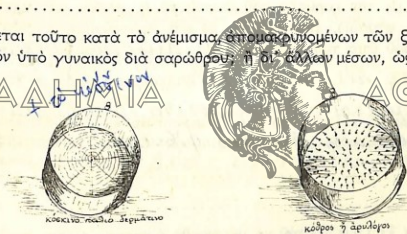 εται τοῦτο κατὰ τὸ ἀνέμισμα, ἀπομακρυνομένων τῶν ξ
ον ὑπὸ γυναικὸς διὰ σαρώθρου; ἢ δι᾽ ἄλλων μέσων, ὡς
ΑΔΗΜΙΑ ΑΘ
κόσκινο παλιὸ δερμάτινο
κόθρος ἢ ἀρυλόγος